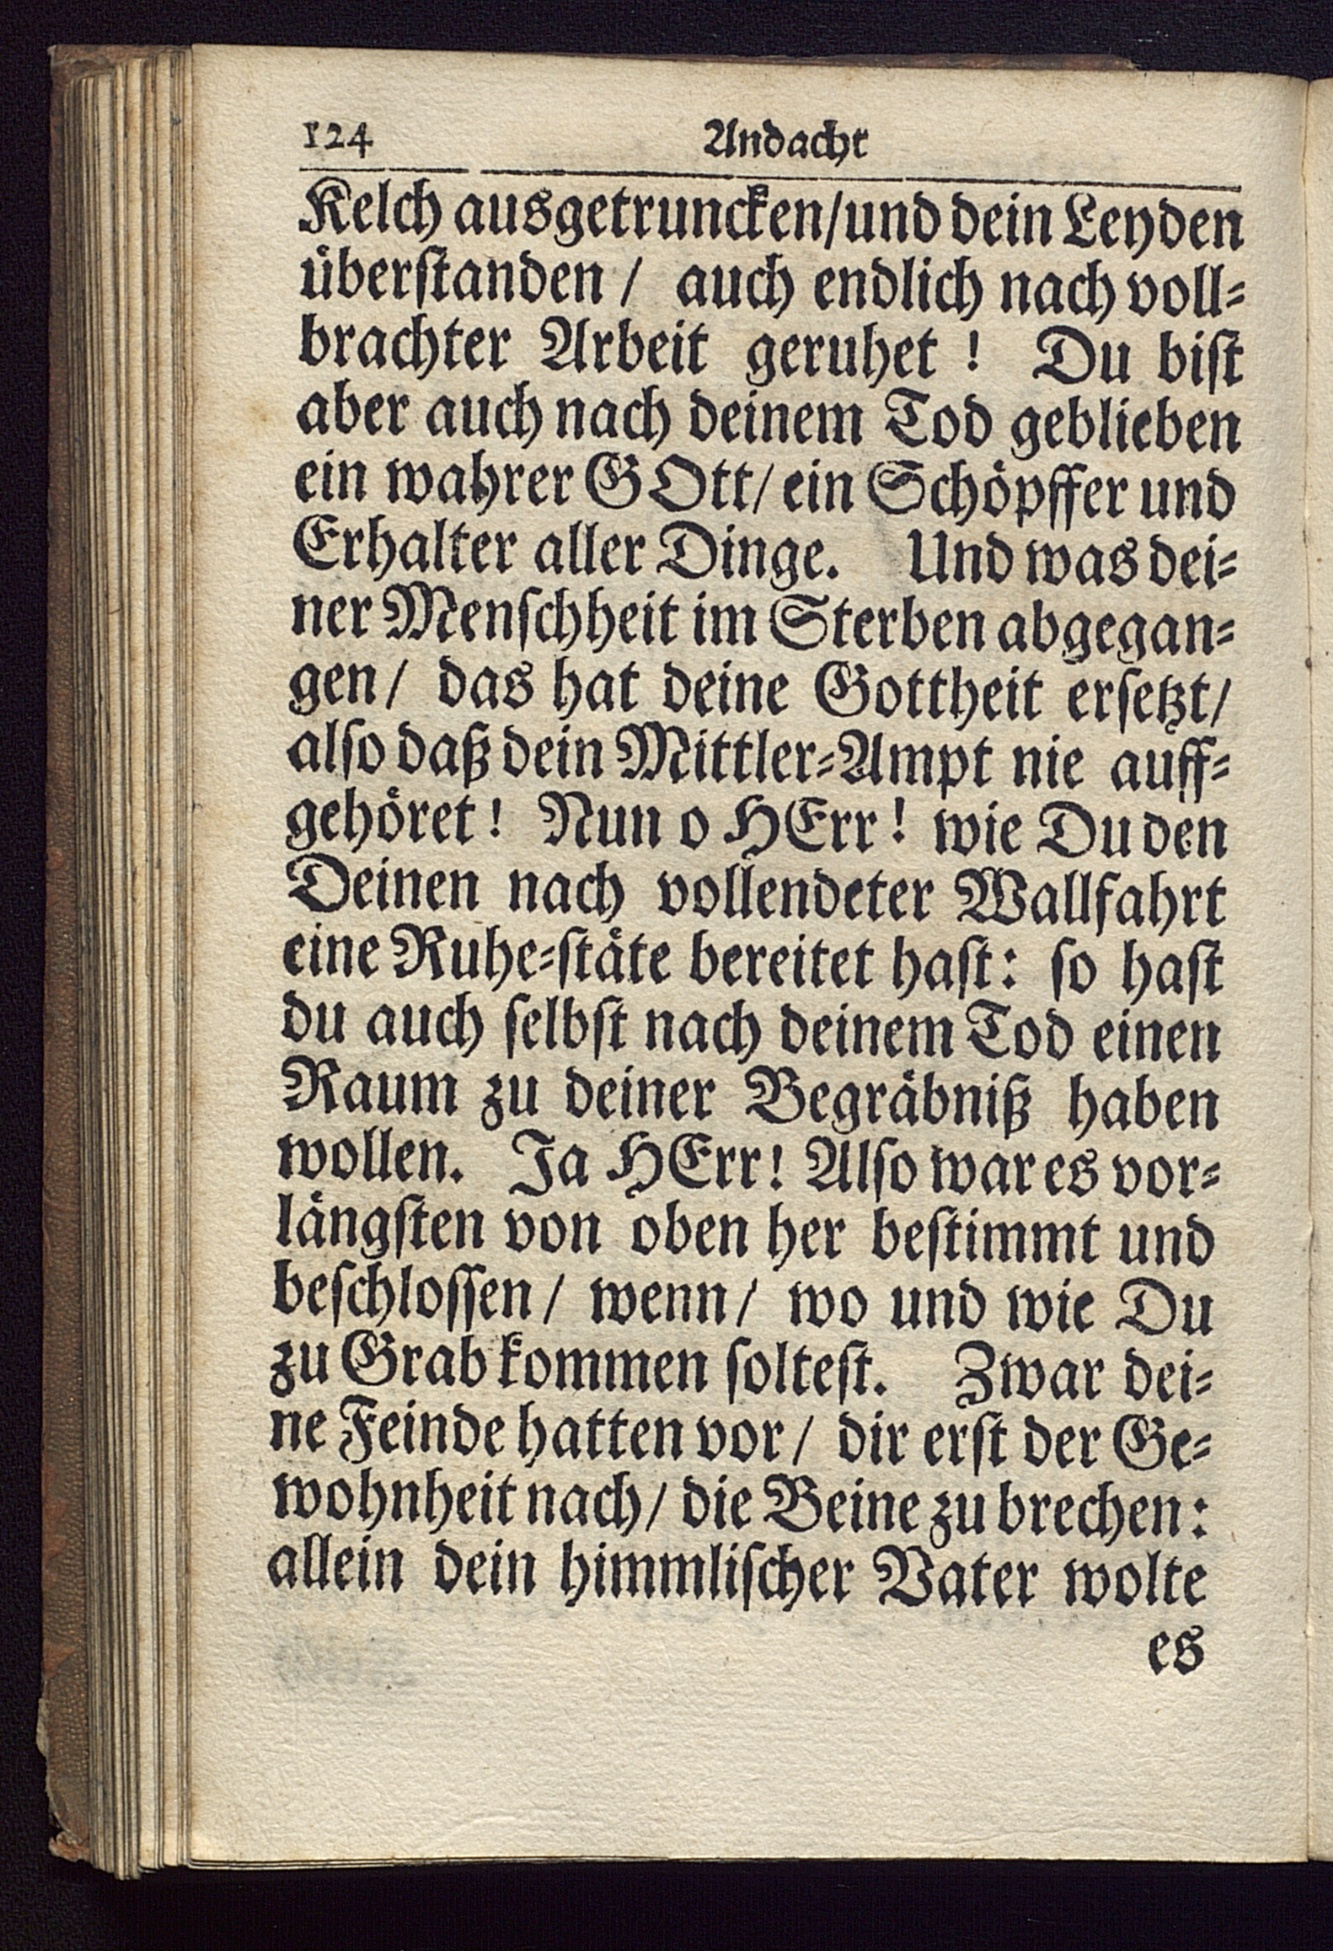 124 Andacht
Kelch ausgetruncken/und dein Leyden
überſtanden / auch endlich nach voll⸗
brachter Arbeit geruhet ! Du biſt
aber auch nach deinem Tod geblieben
ein wahrer GOtt/ ein Schöpffer und
Erhalter aller Dinge. Und was dei⸗
ner Menſchheit im Sterben abgegan⸗
gen/ das hat deine Gottheit erſetzt/
alſo daß dein Mittler⸗Ampt nie auff⸗
gehöret! Nun o HErr! wie Du den
Deinen nach vollendeter Wallfahrt
eine Ruhe⸗ſtäte bereitet haſt: ſo haſt
du auch ſelbſt nach deinem Tod einen
Raum zu deiner Begräbniß haben
wollen. Ja HErr! Alſo war es vor⸗
längſten von oben her beſtimmt und
beſchloſſen/ wenn/ wo und wie Du
zu Grab kommen ſolteſt. Zwar dei⸗
ne Feinde hatten vor/ dir erſt der Ge⸗
wohnheit nach/ die Beine zu brechen:
allein dein himmliſcher Vater wolte
es